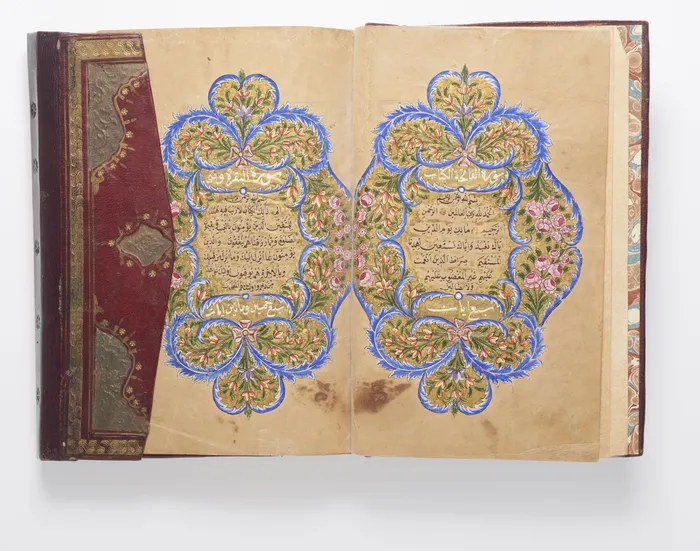 سورة الفاتحة الكتاب
بسم الله الرحمن الرحيم
الحمد لله رب العالمين الرحمن
الرحيم مالك يوم الدين
اياك نعبد واياك نستعين اهدنا
المستقيم صراط الذين انعمت
عليهم غير المغضوب عليهم
ولا الضالين
سبع ايات
سورة البقرة
بسم الله الرحمن الرحيم
الم ذلك الكتاب لا ريب فيه هدى
للمتقين الذين يؤمنون بالغيب ويقيمون
الصلوة ومما رزقناهم ينفقون والذين
يؤمنون بما انزل اليك وما انزل من قبلك
وبالاخرة هم يوقنون اولئك على
هدى من ربهم واولئك هم المفلحون